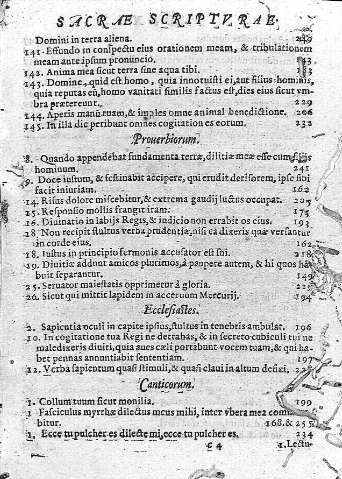 SACRAE SCRIPTVRAE.
Domini in terra aliena. 249
141. Effundo in conspectu eius orationem meam, & tribulationem
meam ante ipsum pronuncio.
142. Anima mea sicut terra sine aqua tibi.
143. Domine, quid est homo, quia innotuisti ei, aut filius hominis,
quia reputas eū, homo vanitati similis factus est, dies eius sicut vm-
bra prætereunt. 229
144. Aperis manū tuam, & imples omne animal benedictione. 206
145. In illa die peribunt omnes cogitationes eorum. 232
Prouerbiorum.
8. Quando appendebat fundamenta terræ, dilitiæ meæ esse cum filijs
hominum. 241
9. Doce iustum, & festinabit accipere, qui erudit derisorem, ipse sibi
facit iniuriam. 162
14. Risus dolore miscebitur, & extrema gaudij luctus occupat. 205
15. Responsio mollis frangit iram. 175
16. Diuinatio in labijs Regis, & iudicio non errabit os eius. 193
18. Non recipit stultus verba prudentiæ, nisi ea dixeris quæ versantur
in corde eius. 162
18. Iustus in principio sermonis accusator est sui. 218
19. Diuitiæ addunt amicos plurimos, à paupere autem, & hi quos ha-
buit separantur. 149
25. Scrutator maiestatis opprimetur à gloria.
26. Sicut qui mittit lapidem in aceruum Mercurij. 194
Ecclesiastes.
2. Sapientis oculi in capite ipsius, stultus in tenebris ambulat. 196
10. In cogitatione tua Regi ne detrahas, & in secreto cubiculi tui ne
maledixeris diuiti, quia aues cœli portabunt vocem tuam, & qui ha-
bet pennas annuntiabit sententiam. 197
12. Verba sapientum quasi stimuli, & quasi claui in altum defixi.
Canticorum.
1. Collum tuum sicut monilia. 199
1 Fasciculus myrrhæ dilectus meus mihi, inter vbera mea commo-
bitur. 168. &
1. Ecce tu pulcher es dilecte mi, ecce tu pulcher es. 234
¢ 4 1. Lectu-